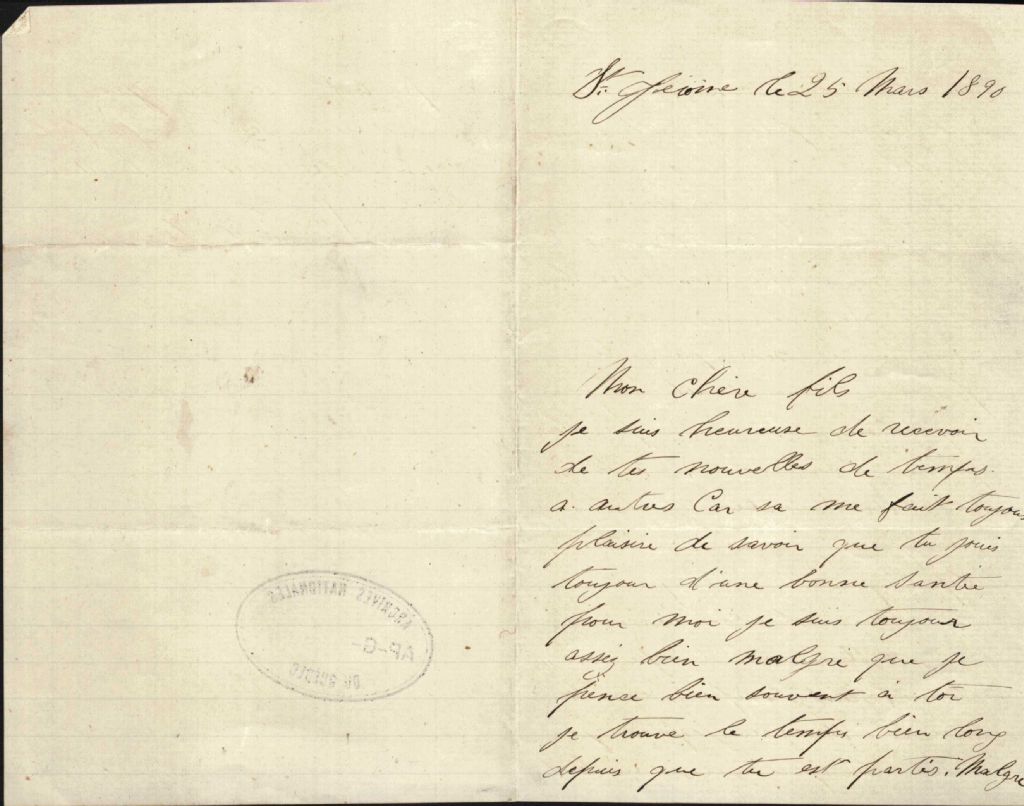 St. Jérome le 25 Mars 1890
Mon chère fils
je suis heureuse de recevoir
de tes nouvelles de temps
a autres Car sa me fait toujours
plaisire de savoir que tu jouis
toujour d'une bonne santié
pour moi je suis toujour
assez bien malgre que je
pence bien souvent à toi
je trouve le temps bien long
depuis que tu est partis. Malgre
ARCHIVES NATIONALES
AP-G-
DU QUÉBEC